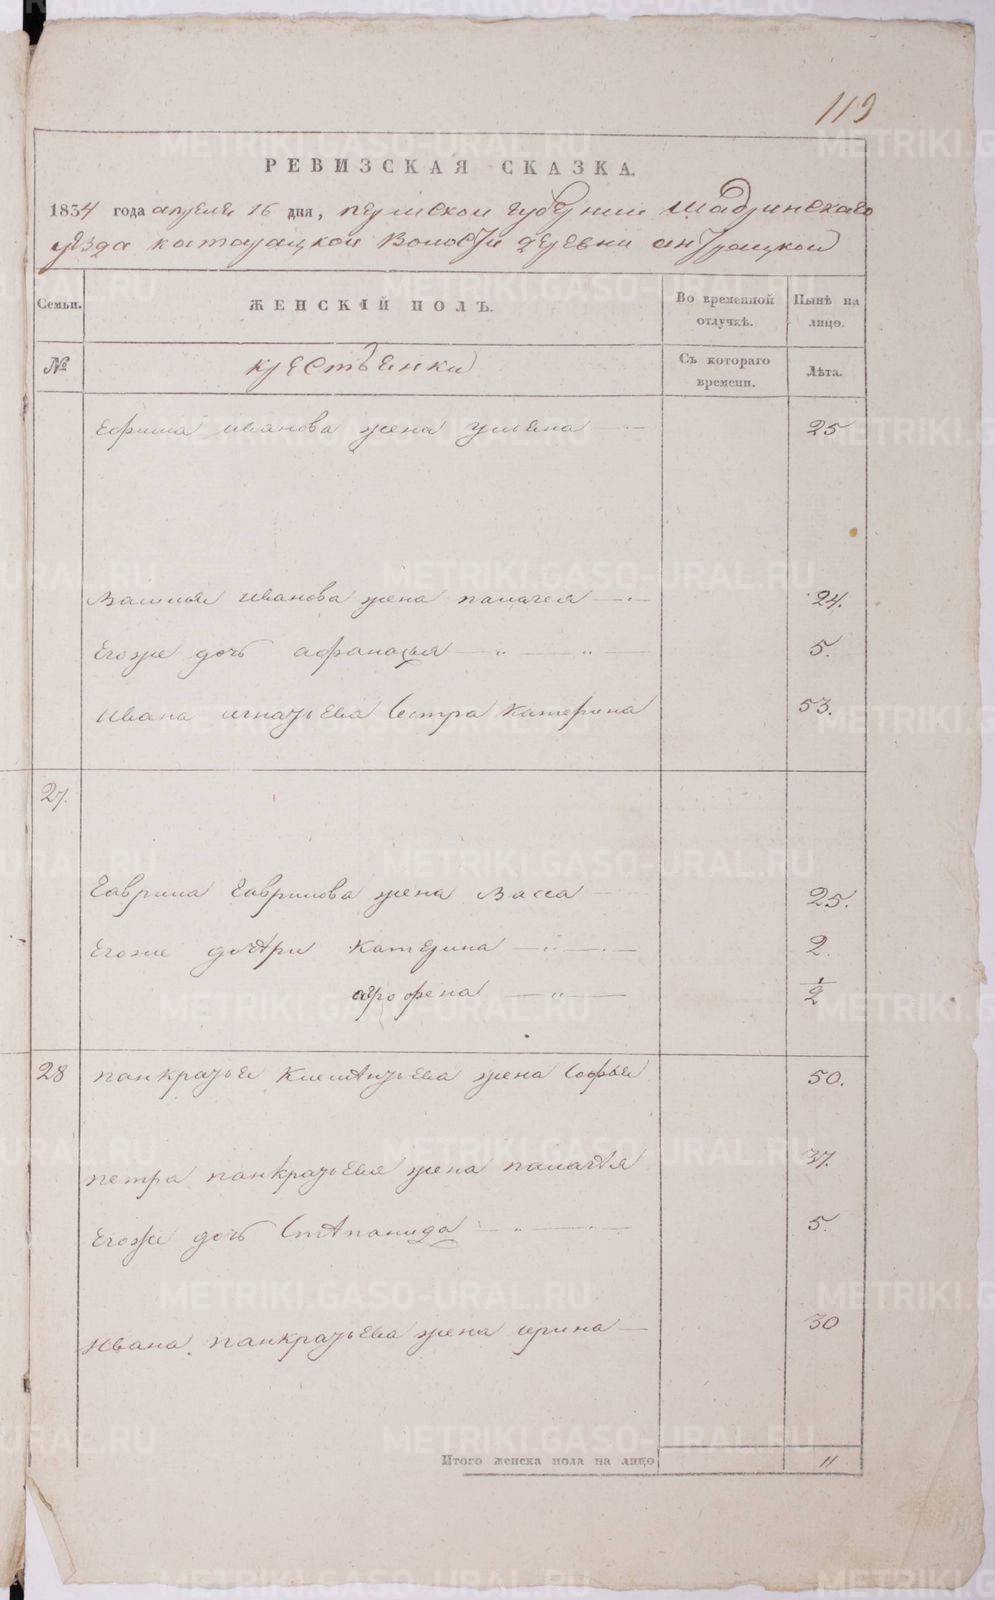 119
РЕВИЗСКАЯ СКАЗКА.
1834 года апреля 16 дня, пермской губернии шадринскаго
уезда катайацкой волости деревни
Семьи. ЖЕНСКІЙ ПОЛЪ. Во временной отлучкѣ. Нынѣ на лицо.
№ крестьенки Съ котораго времени. Лѣта.
Ефима иванова жена ульена 25
Василья иванова жена палагея 24.
Егоже дочь афанасья 5.
ивана игнатьева сестра катерина 53.
27.
Гаврила Гаврилова жена Васса 25.
Егоже дочери катерина 2.
агрофена 1/2
28 панкратья клементьева жена софья 50.
петра панкратьева жена палагея 37.
Егоже дочь степанида 5.
ивана панкратьева жена ирина 30
Итого женска пола на лицо 11
METRIKI.GASO-URAL.RU